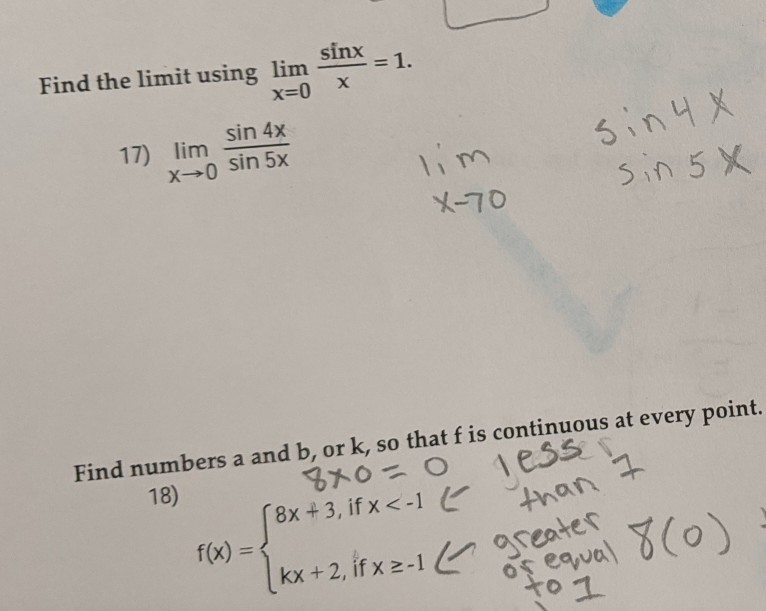 Find the limit using lim x=0 sinx/x = 1.
17) lim x→0 sin 4x / sin 5x
lim x→0
sin 4x
sin 5x
Find numbers a and b, or k, so that f is continuous at every point.
18)
8x0=0
less than 1
f(x) = { 8x + 3, if x < -1
kx + 2, if x ≥ -1
greater or equal to 1
8(0)